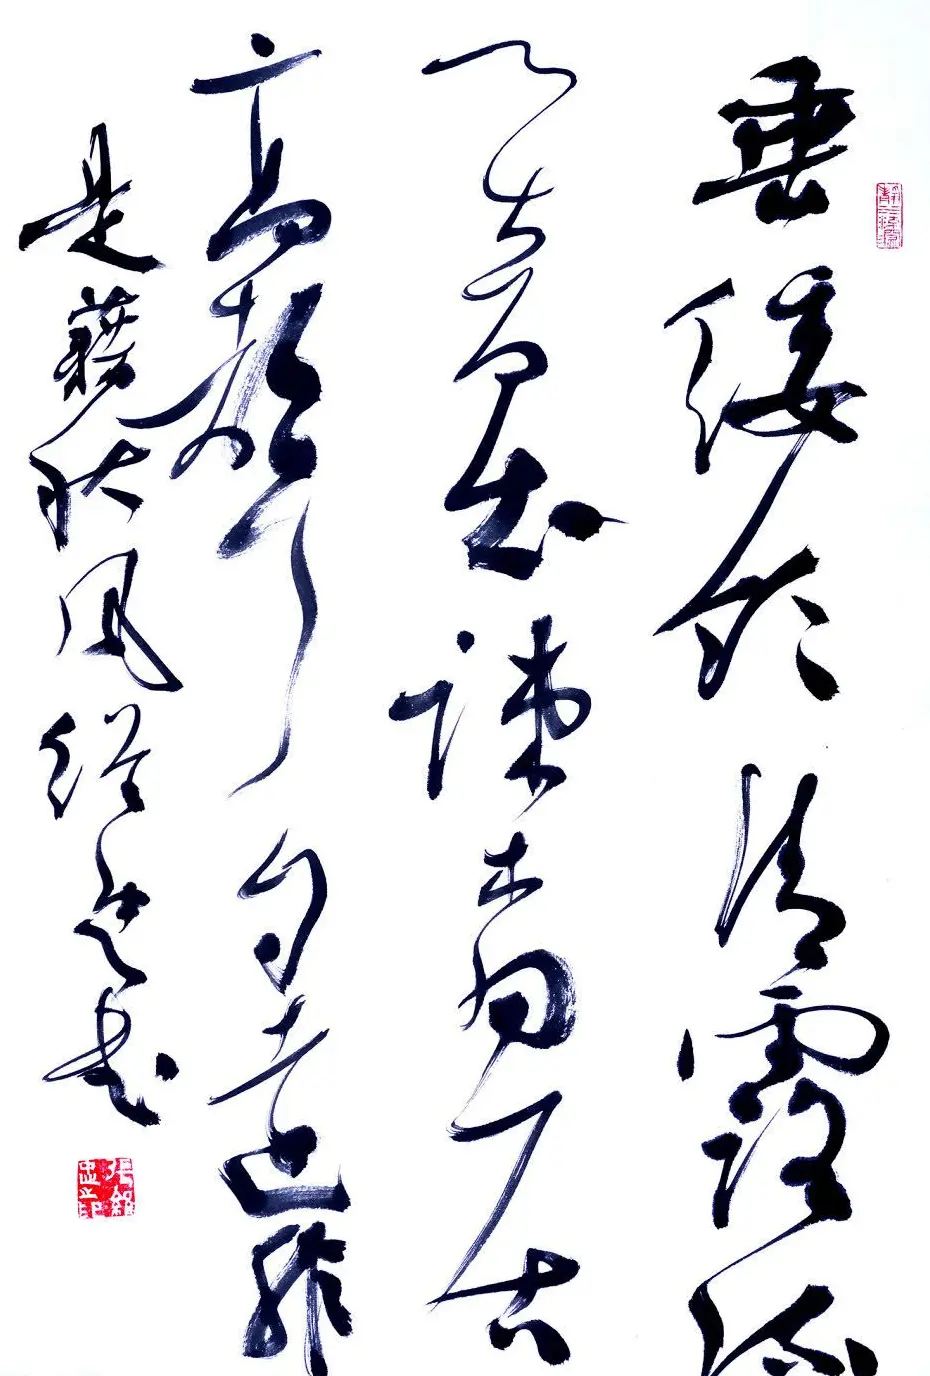 垂緌飲清露流
響出疎桐居
高聲自遠非
是藉秋風 忠書